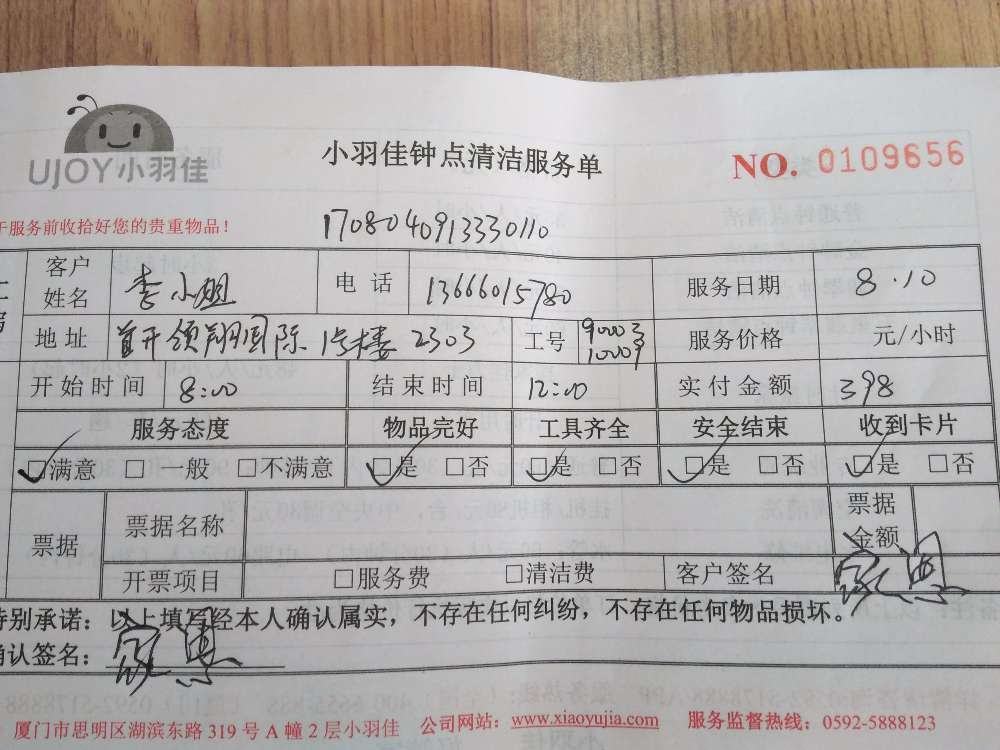 UJOY小羽佳
小羽佳钟点清洁服务单
NO. 0109656
于服务前收拾好您的贵重物品！
1708040913330110
客户姓名 李小姐 电话 13666015780 服务日期 8.10
地址 首开领翔国际 2303 工号 服务价格 元/小时
开始时间 8:00 结束时间 12:00 实付金额 398
服务态度 物品完好 工具齐全 安全结束 收到卡片
☑满意 □一般 □不满意 ☑是 □否 ☑是 □否 ☑是 □否 ☑是 □否
票据 票据名称 票据金额
开票项目 □服务费 □清洁费 客户签名
特别承诺：以上填写经本人确认属实，不存在任何纠纷，不存在任何物品损坏。
确认签名：
厦门市思明区湖滨东路 319 号 A 幢 2 层小羽佳 公司网站：www.xiaoyujia.com 服务监督热线：0592-5888123